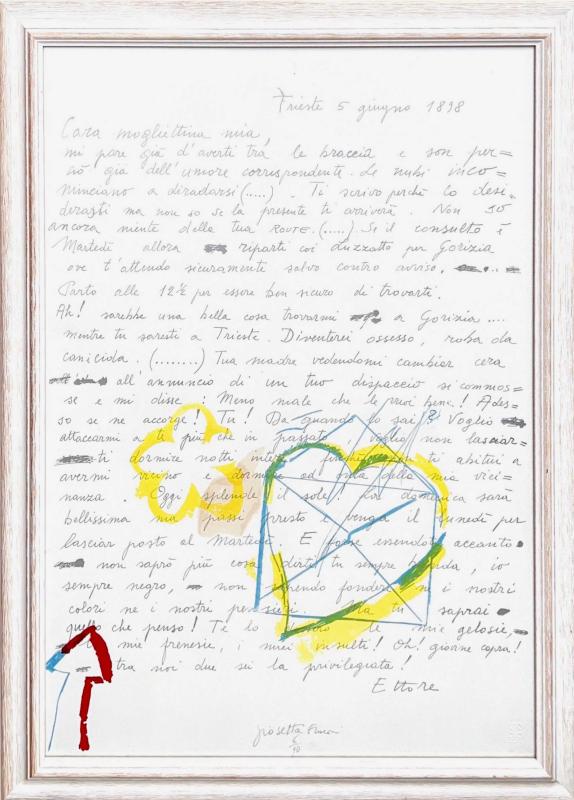 Trieste 5 giugno 1898
Cara mogliettina mia,
mi pare già d'averti tra le braccia e son per=
ciò già dell'umore corrispondente. Le nubi inco=
minciano a diradarsi (.....) . Ti scrivo perchè lo desi=
derasti ma non so se la presente ti arriverà. Non so
ancora niente della tua ROUTE. (.....). Se il consulto è
Martedì allora riparti coi dizzatto per Gorizia
ove t'attendo sicuramente salvo contro avviso.
Parto alle 12½ per essere ben sicuro di trovarti.
Ah! sarebbe una bella cosa trovarmi a Gorizia ....
mentre tu saresti a Trieste. Diventerei ossesso, roba da
canicida. (........) Tua madre vedendomi cambiar cera
all'annuncio di un tuo dispaccio si commos=
se e mi disse: Meno male che le vuoi bene! Ades=
so se ne accorge! Tu! Da quando lo sai? Voglio
attaccarmi a te più che in passato, voglio non lasciar=
ti dormire notti intere finchè non ti abitui a
avermi vicino e dormire ad onta della mia vici=
nanza. Oggi splende il sole! La domenica sarà
bellissima ma passi presto e venga il lunedì per
lasciar posto al Martedì. E forse essendoti accanto
non saprò più cosa dirti tu sempre bionda, io
sempre negro, non sapendo fondere nè i nostri
colori nè i nostri pensieri. Ma tu saprai
quello che penso! Te lo le mie gelosie,
mie frenesie, i miei insulti! Oh! giovine capra!
tra noi due sei la privilegiata!
Ettore
Giosetta Fioroni
6/90